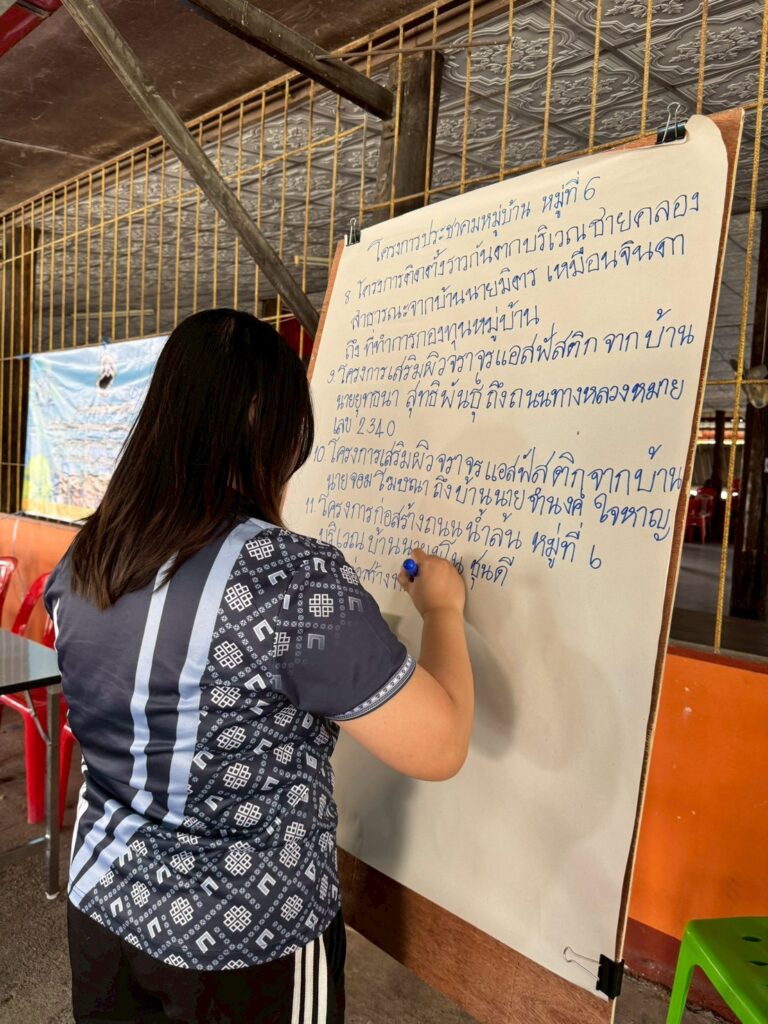 โครงการประชาคมหมู่บ้าน หมู่ที่ 6
8. โครงการติดตั้งราวกันตกบริเวณชายคลอง
สาธารณะจากบ้านนายมิตร เหมือนจินดา
ถึง ที่ทำการกองทุนหมู่บ้าน
9. โครงการเสริมผิวจราจรแอสฟัสติก จาก บ้าน
นายยุทธนา สุทธิพันธุ์ ถึงถนนทางหลวงหมาย
เลข 2340
10. โครงการเสริมผิวจราจรแอสฟัสติกจากบ้าน
นายจอม โฆษณา ถึงบ้านนายจำนงค์ ใจหาญ
11. โครงการก่อสร้างถนน น้ำล้น หมู่ที่ 6
บริเวณ บ้าน ชุนดี